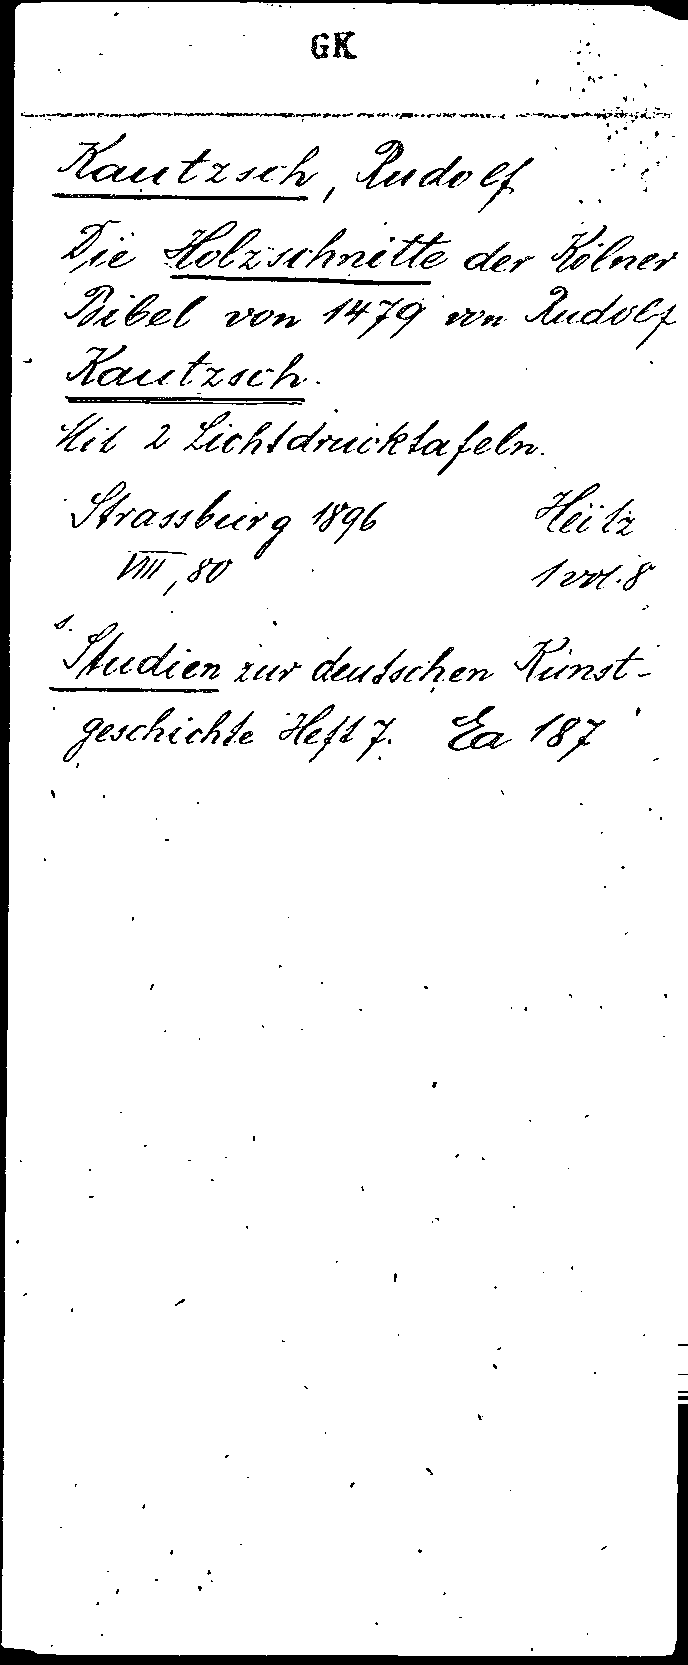 GK
Kautzsch, Rudolf
Die Holzschnitte der Kölner
Bibel von 1479 von Rudolf
Kautzsch.
Mit 2 Lichtdrucktafeln.
Strassburg 1896 Heitz
VIII, 80 1 vol. 8
s. Studien zur deutschen Kunst-
geschichte Heft 7. Ea 187